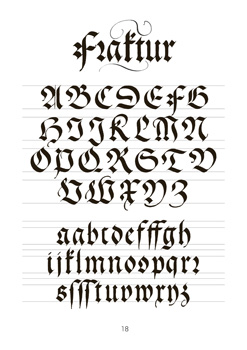 Fraktur
ABCDEFG
HIJKLMN
OPQRSTU
VWXYZ
aabcdefffgh
ijklmnoopqrꝛ
sſſſtuvwxyz
18